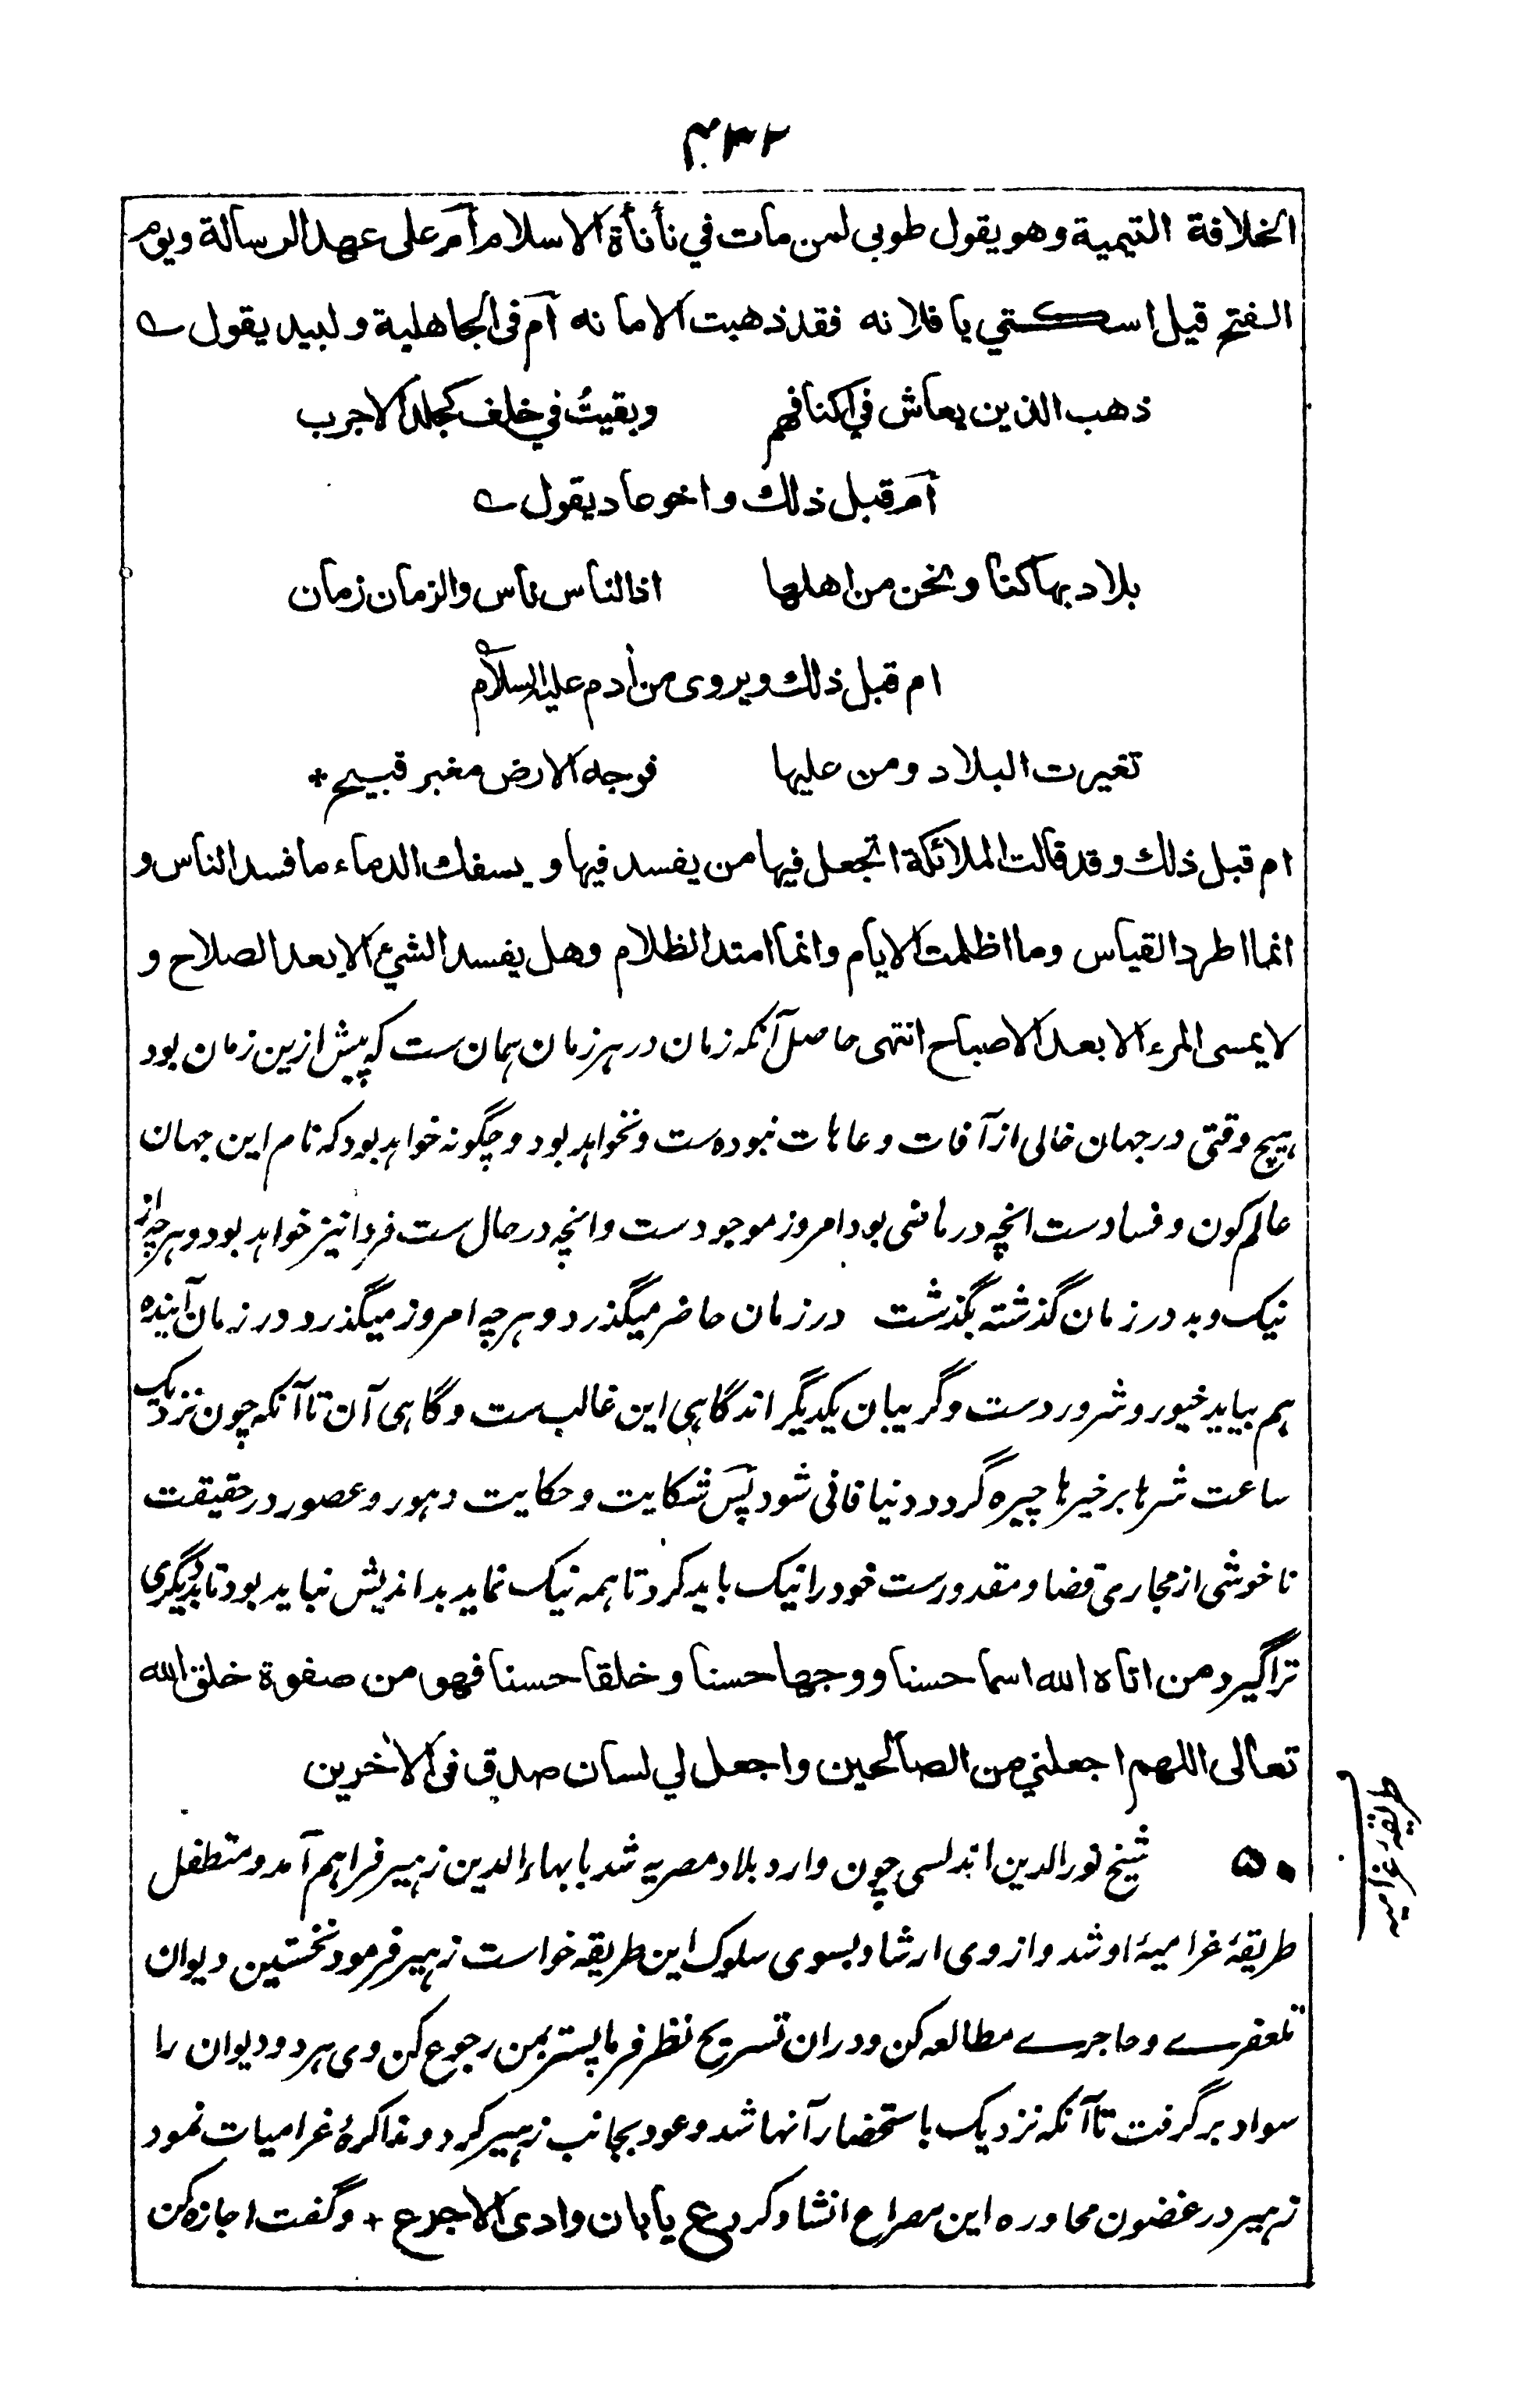 ۴۳۲
الخلافة التيمية وهو يقول طوبى لمن مات في نأنأة الاسلام آم على عهد الرسالة ويوم
الفتح قيل اسكتي يا فلانه فقد ذهبت الامانه آم فى الجاهلية ولبيد يقول ے
ذهب الذين يعاش في اكنافهم وبقيتُ في خلف كجلد الاجرب
آم قبل ذلك واخو عاد يقول ے
بلاد بها كنا ونحن من اهلها اذ الناس ناس والزمان زمان
ام قبل ذلك ويروى من أدم عليه السلام
تغيرت البلاد ومن عليها فوجه الارض مغبر قبيح +
ام قبل ذلك وقد قالت الملائكة اتجعل فيها من يفسد فيها ويسفك الدماء ما فسد الناس و
انما اطرد القياس وما اظلمت الايام وانما امتد الظلام وهل يفسد الشيء الا بعد الصلاح و
لا يمسى المرء الا بعد الاصباح انتهى حاصل آنکه زمان در هر زمان همان ست که پیش ازین زمان بود
هیچ وقتی در جهان خالی از آفات و عاهات نبوده ست و نخواهد بود و چگونه خواهد بود که نام این جهان
عالم کون و فساد ست انچه در ماضی بود امروز موجود ست و انچه در حال ست فردا نیز خواهد بود و هر چه از
نیک و بد در زمان گذشته بگذشت در زمان حاضر میگذرد و هر چه امروز میگذرد در زمان آینده
هم بیاید خیور و شرور دست و گریبان یکدیگر اند گاهی این غالب ست و گاهی آن تا آنکه چون نزدیک
ساعت شرها بر خیرها چیره گردد دنیا فانی شود پس شکایت و حکایت دهور و عصور در حقیقت
ناخوشی از مجاری قضا و مقدور ست خود را نیک باید کرد تا همه نیک نماید بد اندیش نباید بود تا بد دیگری
ترا گیرد من اتاه الله اسما حسنا ووجها حسنا وخلقا حسنا فهو من صفوة خلق الله
تعالى اللهم اجعلني من الصالحين واجعل لي لسان صدق فى الاخرين
۵۰ شیخ نور الدین اندلسی چون وارد بلاد مصریه شد با بهاء الدین زهیر فراهم آمد و متطفل
طریقهٔ غرامیهٔ او شد و از وی ارشاد بسوی سلوک این طریقه خواست زهیر فرمود نخستین دیوان
تلعفرے و حاجرے مطالعه کن و دران تسریح نظر فرما پستر بمن رجوع کن وی هر دو دیوان را
سواد بر گرفت تا آنکه نزدیک باستحضار آنها شد و عود بجانب زهیر کرد و مذاکرهٔ غرامیات نمود
زهیر در غضون محاوره این مصراع انشاد کرد ع یا بان وادی الاجرع + و گفت اجازه کن
طریقهٔ غرامیه